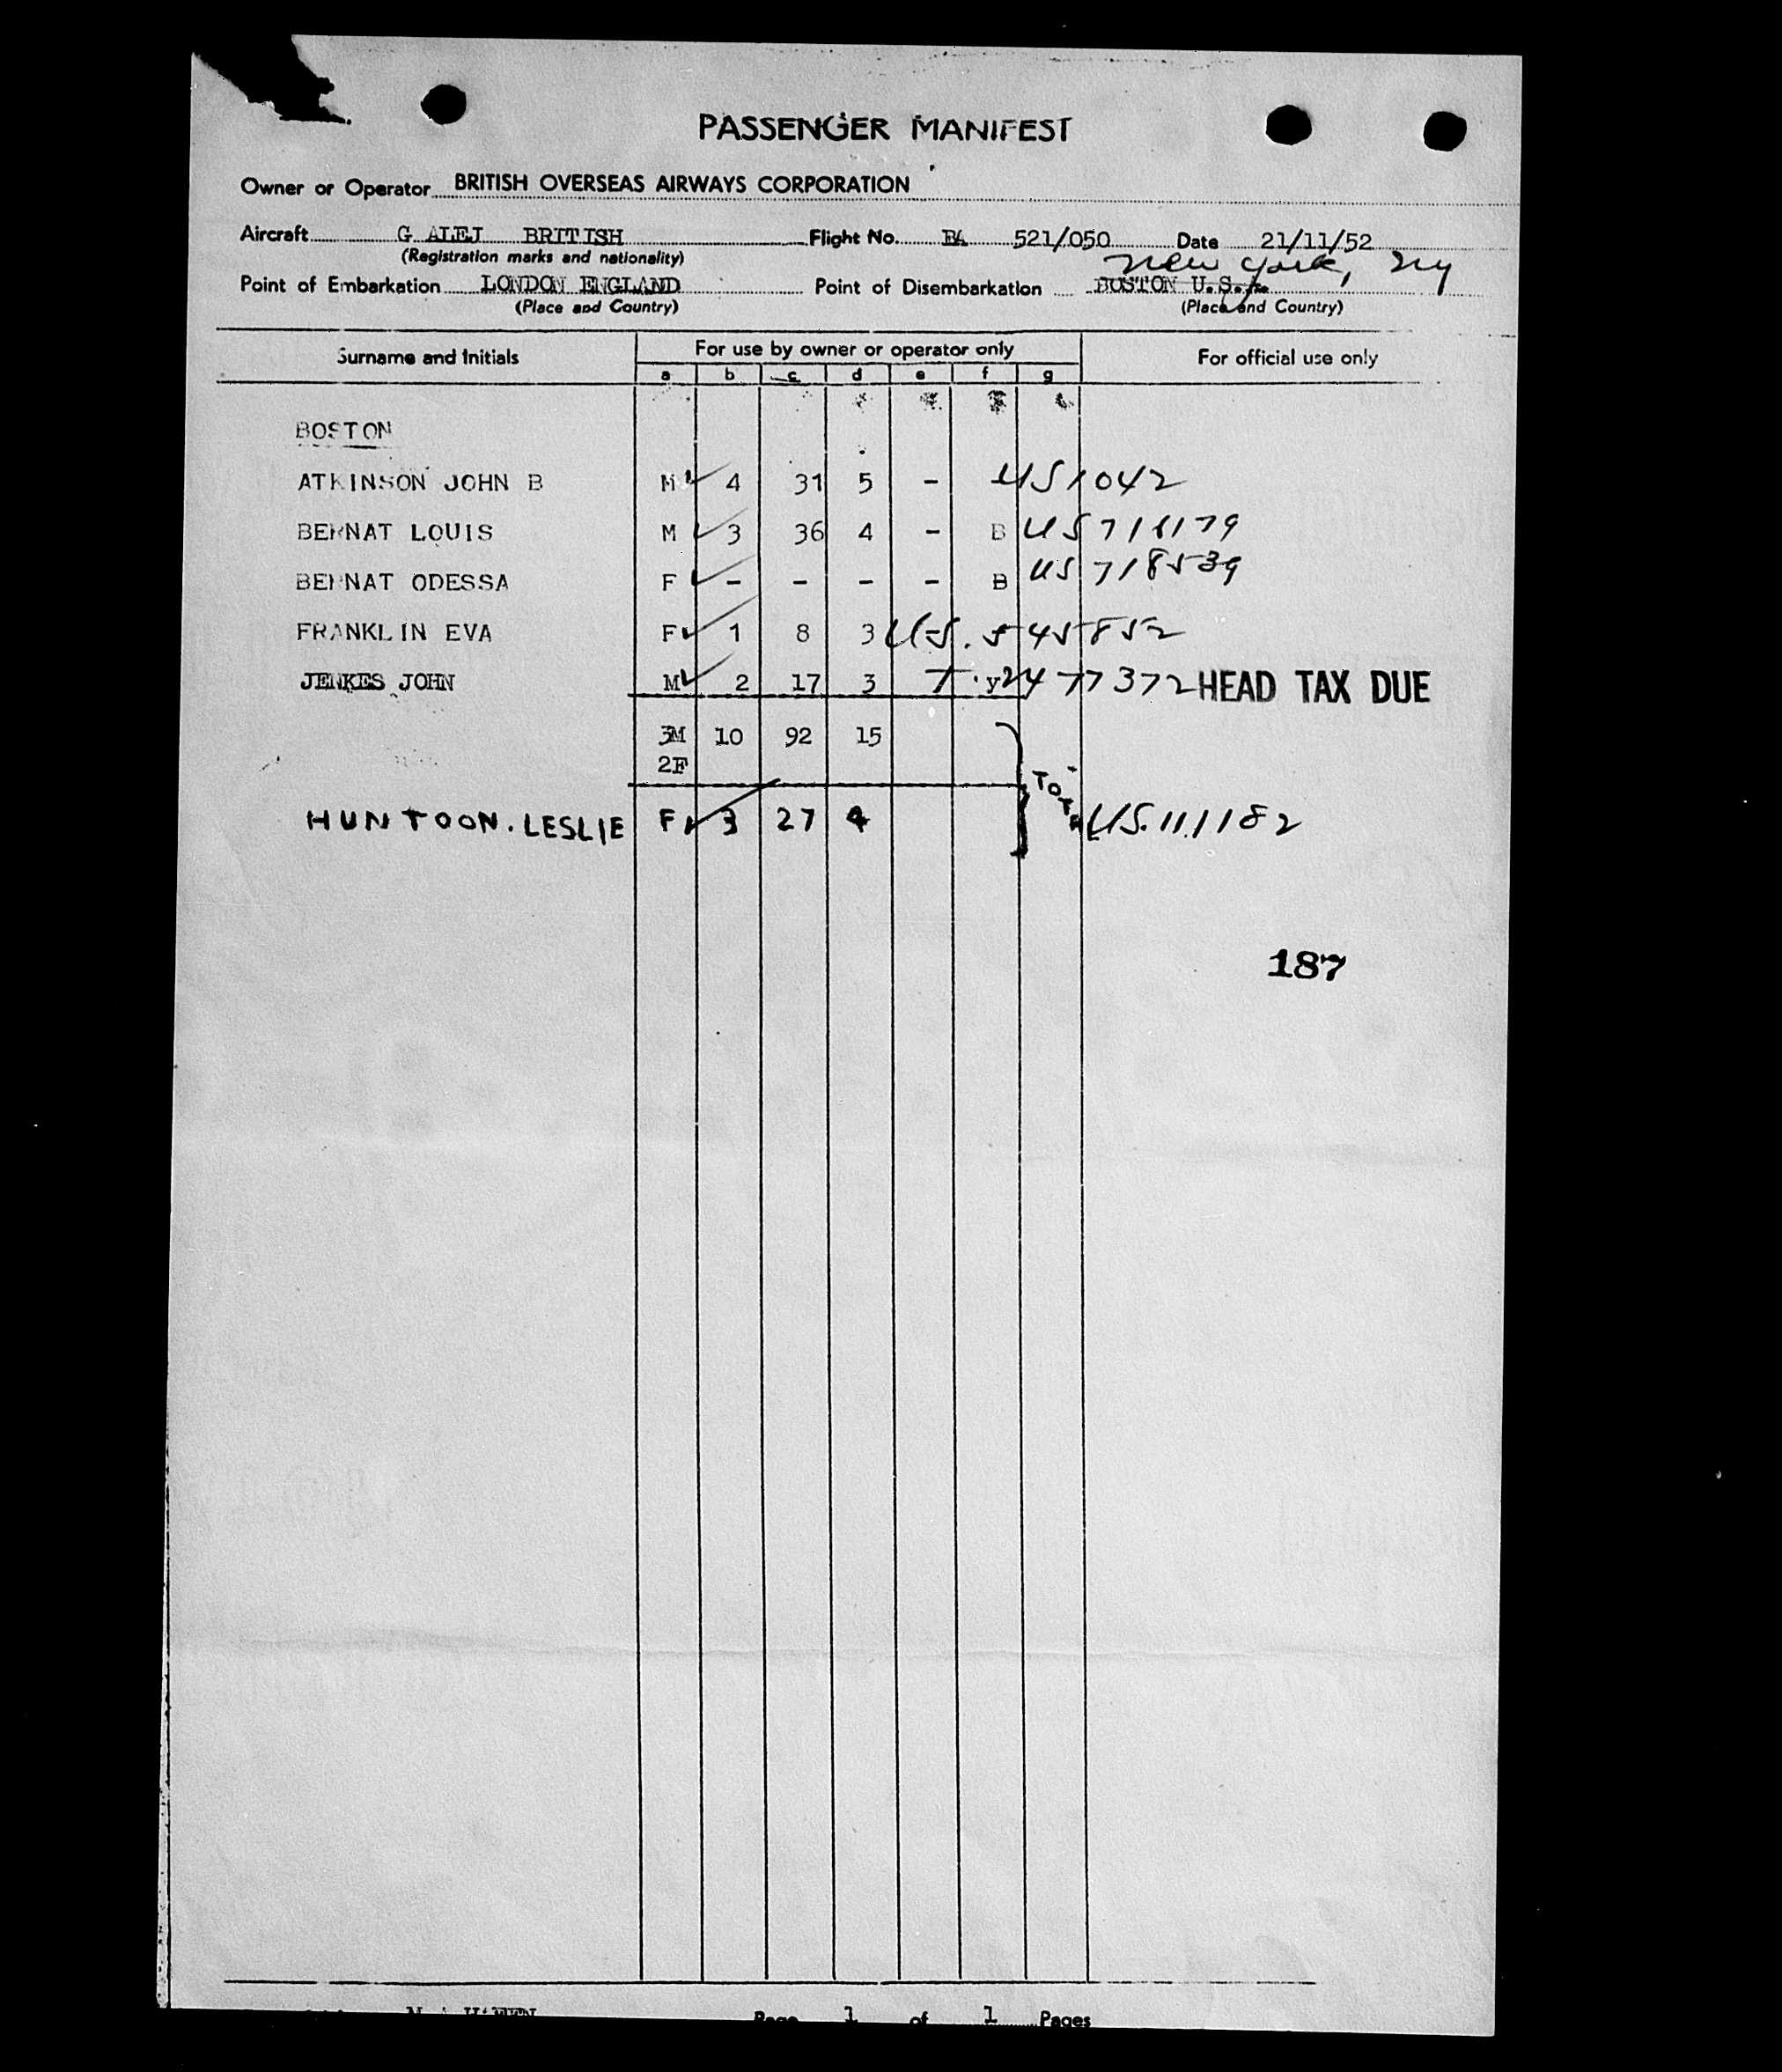 PASSENGER MANIFEST
Owner or Operator BRITISH OVERSEAS AIRWAYS CORPORATION
Aircraft G ALEJ BRITISH Flight No. BA 521/050 Date 21/11/52
(Registration marks and nationality)
New York, NY
Point of Embarkation LONDON ENGLAND Point of Disembarkation BOSTON U.S.A.
(Place and Country) (Place and Country)
Surname and Initials For use by owner or operator only For official use only
a b c d e f g
BOSTON
ATKINSON JOHN B M 4 31 5 - US 1042
BERNAT LOUIS M 3 36 4 - B US 718179
BERNAT ODESSA F - - - - B US 718539
FRANKLIN EVA F 1 8 3 U.S. 545852
JENKES JOHN M 2 17 3 T. y 2477372 HEAD TAX DUE
3M 10 92 15
2F
HUNTOON. LESLIE F 3 27 4 US. 111182
187
Page 1 of 1 Pages